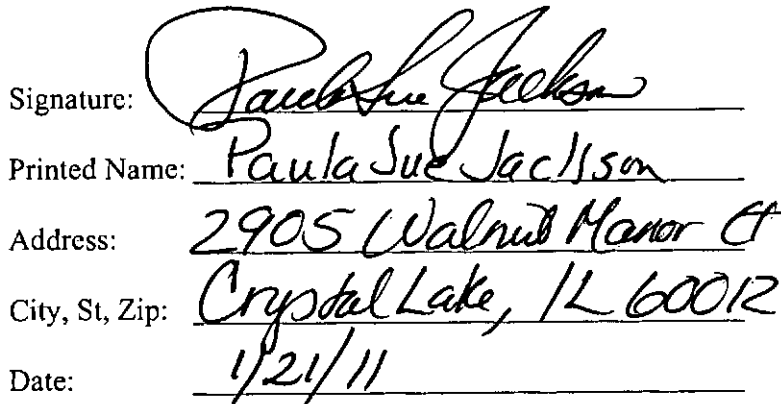 Signature: Paula Sue Jackson
Printed Name: Paula Sue Jackson
Address: 2905 Walnut Manor Ct
City, St, Zip: Crystal Lake, IL 60012
Date: 1/21/11